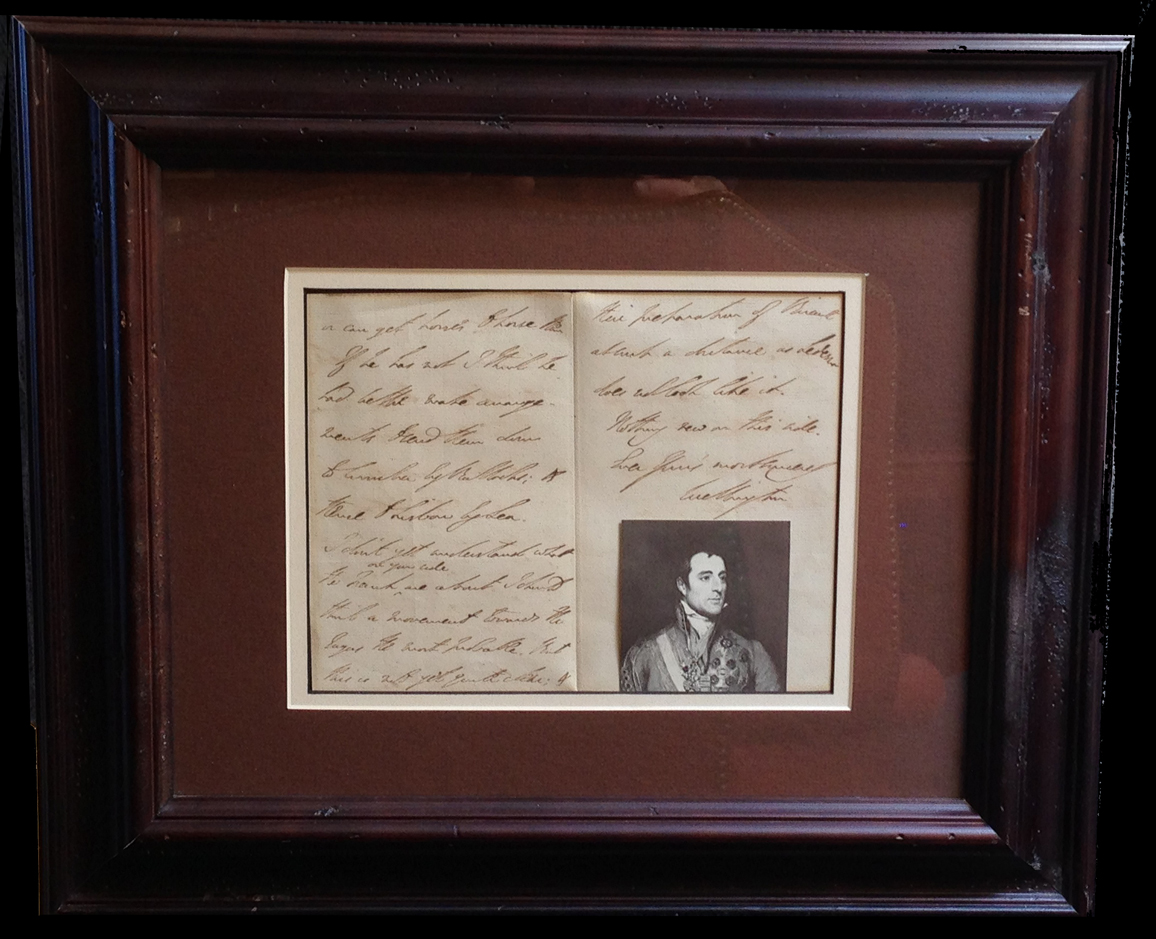 or can get horses & horse
If he has not I think he
had better make arrange-
ments & send them down
to by Bullocks; &
thence to Lisbon by Sea.
I don't yet understand what
on your side
the French are about. I should
think a movement towards the
Tagus the most probable. But
this is not yet quite clear; &
their preparation of Biscuit
at such a distance as
does not look like it.
Nothing new on this side.
Ever Yours most sincerely
Wellington